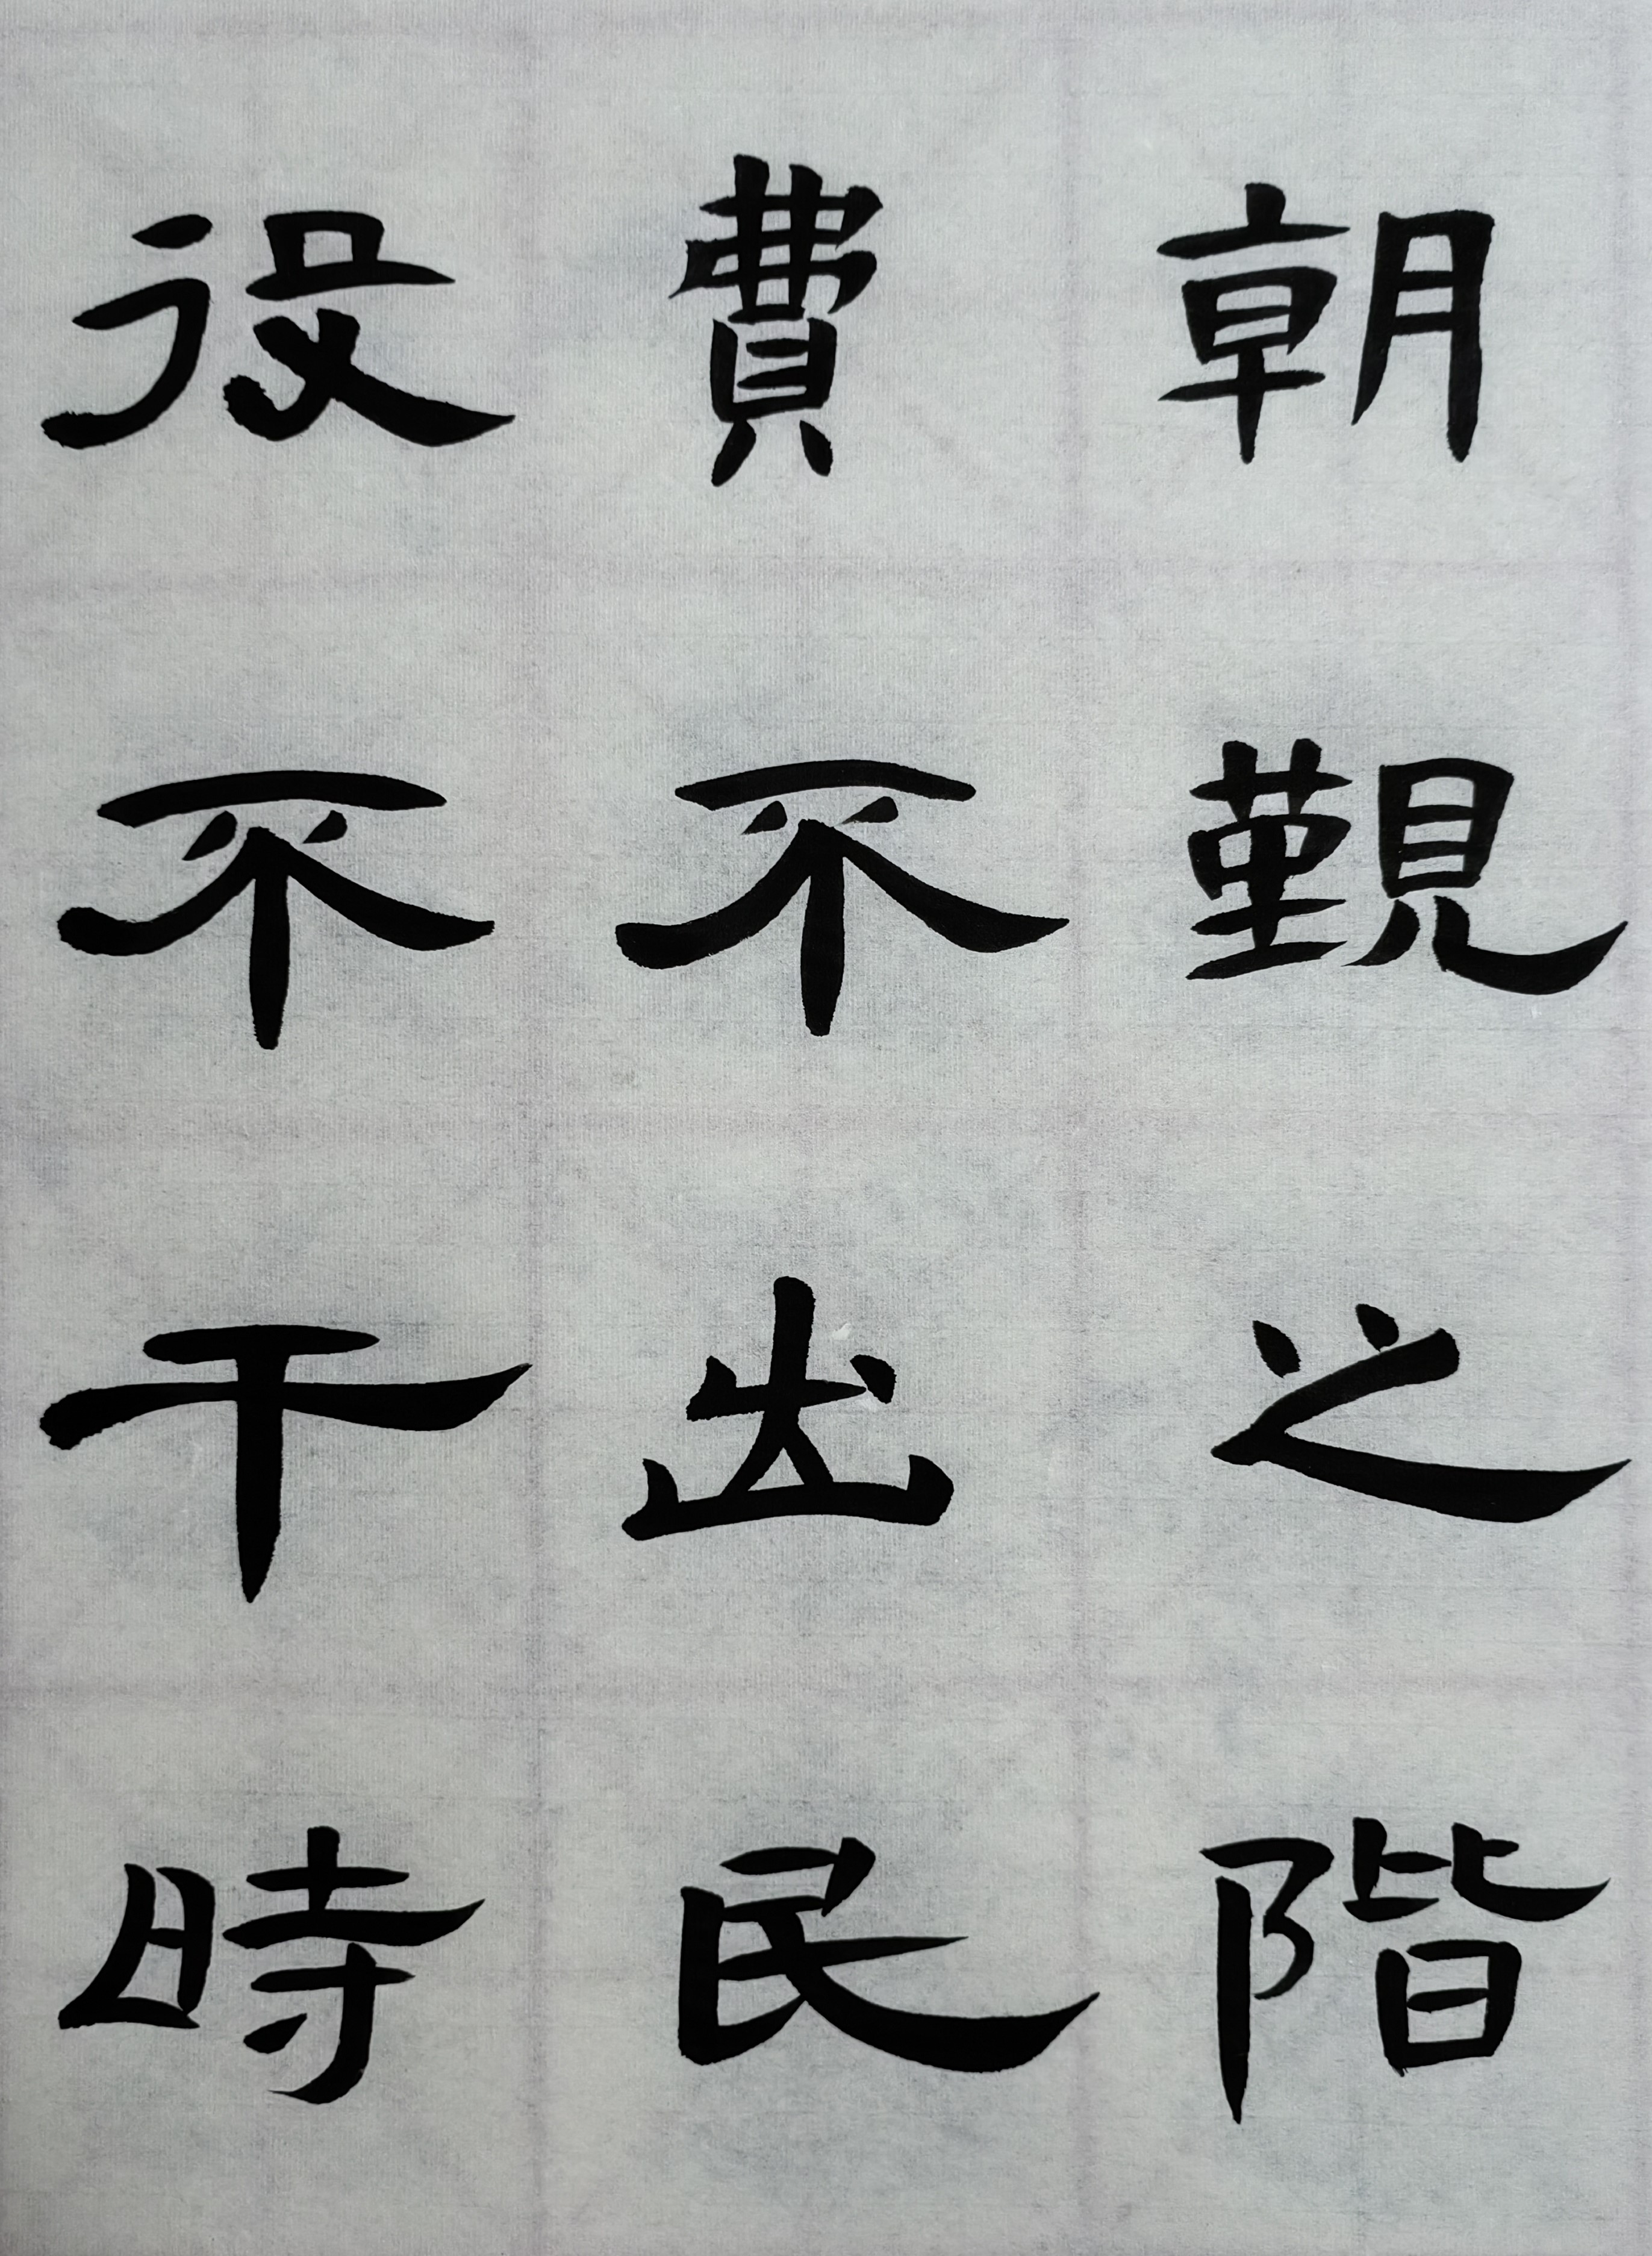 朝覲之階
費不出民
役不干時